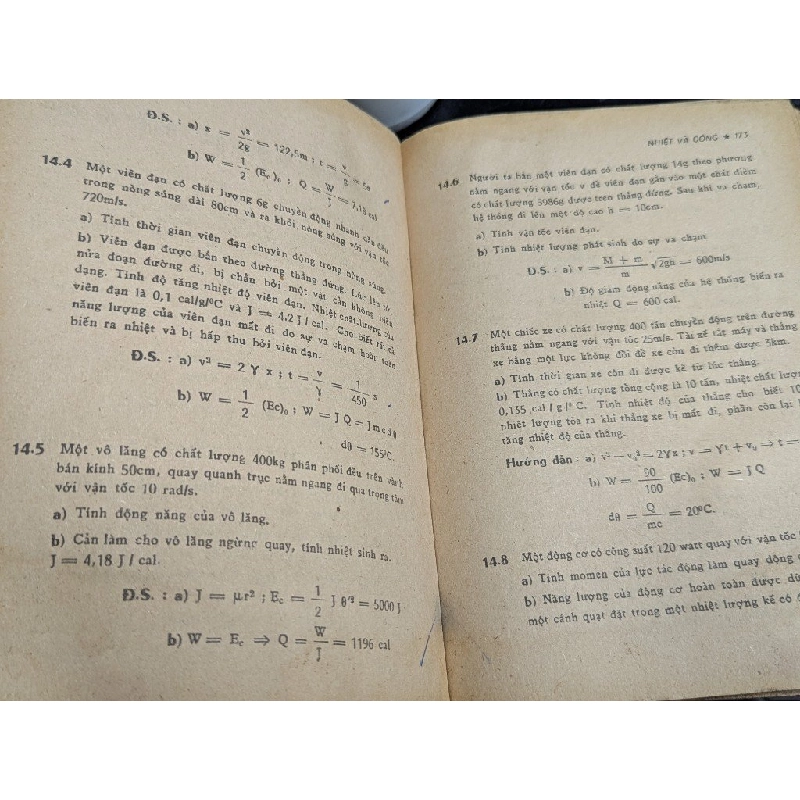 Đ.S. : a) x = v² / 2g = 129,5m ; t = v / g
b) W = 1/2 (Ec)₀ ; Q = W / J = 7,13 cal
14.4 Một viên đạn có chất lượng 6g chuyển động nhanh dần đều
trong nòng súng dài 80cm và ra khỏi nòng súng với vận tốc
720m/s.
a) Tính thời gian viên đạn chuyển động trong nòng súng.
b) Viên đạn được bắn theo đường thẳng đứng. Lúc lên
nửa đoạn đường đi, bị chắn bởi một vật cản không
dạng. Tính độ tăng nhiệt độ viên đạn. Nhiệt chất lượng của
viên đạn là 0,1 cal/g/°C và J = 4,2 J / cal. Cho biết
năng lượng của viên đạn mất đi do sự va chạm hoàn toàn
biến ra nhiệt và bị hấp thu bởi viên đạn.
Đ.S. : a) v² = 2 γ x ; t = v / γ = 1 / 450 s
b) W = 1/2 (Ec)₀ ; W = J Q = J mc dθ
dθ = 155°C.
14.5 Một vô lăng có chất lượng 400kg phân phối đều trên
bán kính 50cm, quay quanh trục nằm ngang đi qua trọng tâm
với vận tốc 10 rad/s.
a) Tính động năng của vô lăng.
b) Cản làm cho vô lăng ngừng quay, tính nhiệt sinh ra.
J = 4,18 J / cal.
Đ.S. : a) J = μr² ; Ec = 1/2 J θ'² = 5000 J
b) W = Ec ⇒ Q = W / J = 1196 cal
NHIỆT VÀ CÔNG ★ 173
14.6 Người ta bắn một viên đạn có chất lượng 14g theo phương
nằm ngang với vận tốc v để viên đạn gắn vào một chất điểm
có chất lượng 5986g được treo thẳng đứng. Sau khi va chạm,
hệ thống đi lên một độ cao h = 10cm.
a) Tính vận tốc viên đạn.
b) Tính nhiệt lượng phát sinh do sự va chạm
Đ.S. : a) v = M + m / m √2gh = 600m/s
b) Độ giảm động năng của hệ thống biến ra
nhiệt Q = 600 cal.
14.7 Một chiếc xe có chất lượng 400 tấn chuyển động trên đường
thẳng nằm ngang với vận tốc 25m/s. Tài xế tắt máy và thắng
xe bằng một lực không đổi để xe còn đi thêm được 5km.
a) Tính thời gian xe còn đi được kể từ lúc thắng.
b) Thắng có chất lượng tổng cộng là 10 tấn, nhiệt chất lượng
0,155 cal / g /° C. Tính nhiệt độ của thắng cho biết
nhiệt lượng tỏa ra khi thắng xe bị mất đi, phần còn lại
tăng nhiệt độ của thắng.
Hướng dẫn : a) v² − v₀² = 2γx ; v = γt + v₀ → t =
b) W = 90 / 100 (Ec)₀ ; W = J Q
dθ = Q / mc = 20°C.
14.8 Một động cơ có công suất 120 watt quay với vận tốc
a) Tính momen của lực tác động làm quay động
b) Năng lượng của động cơ hoàn toàn được
một cánh quạt đặt trong một nhiệt lượng kế có